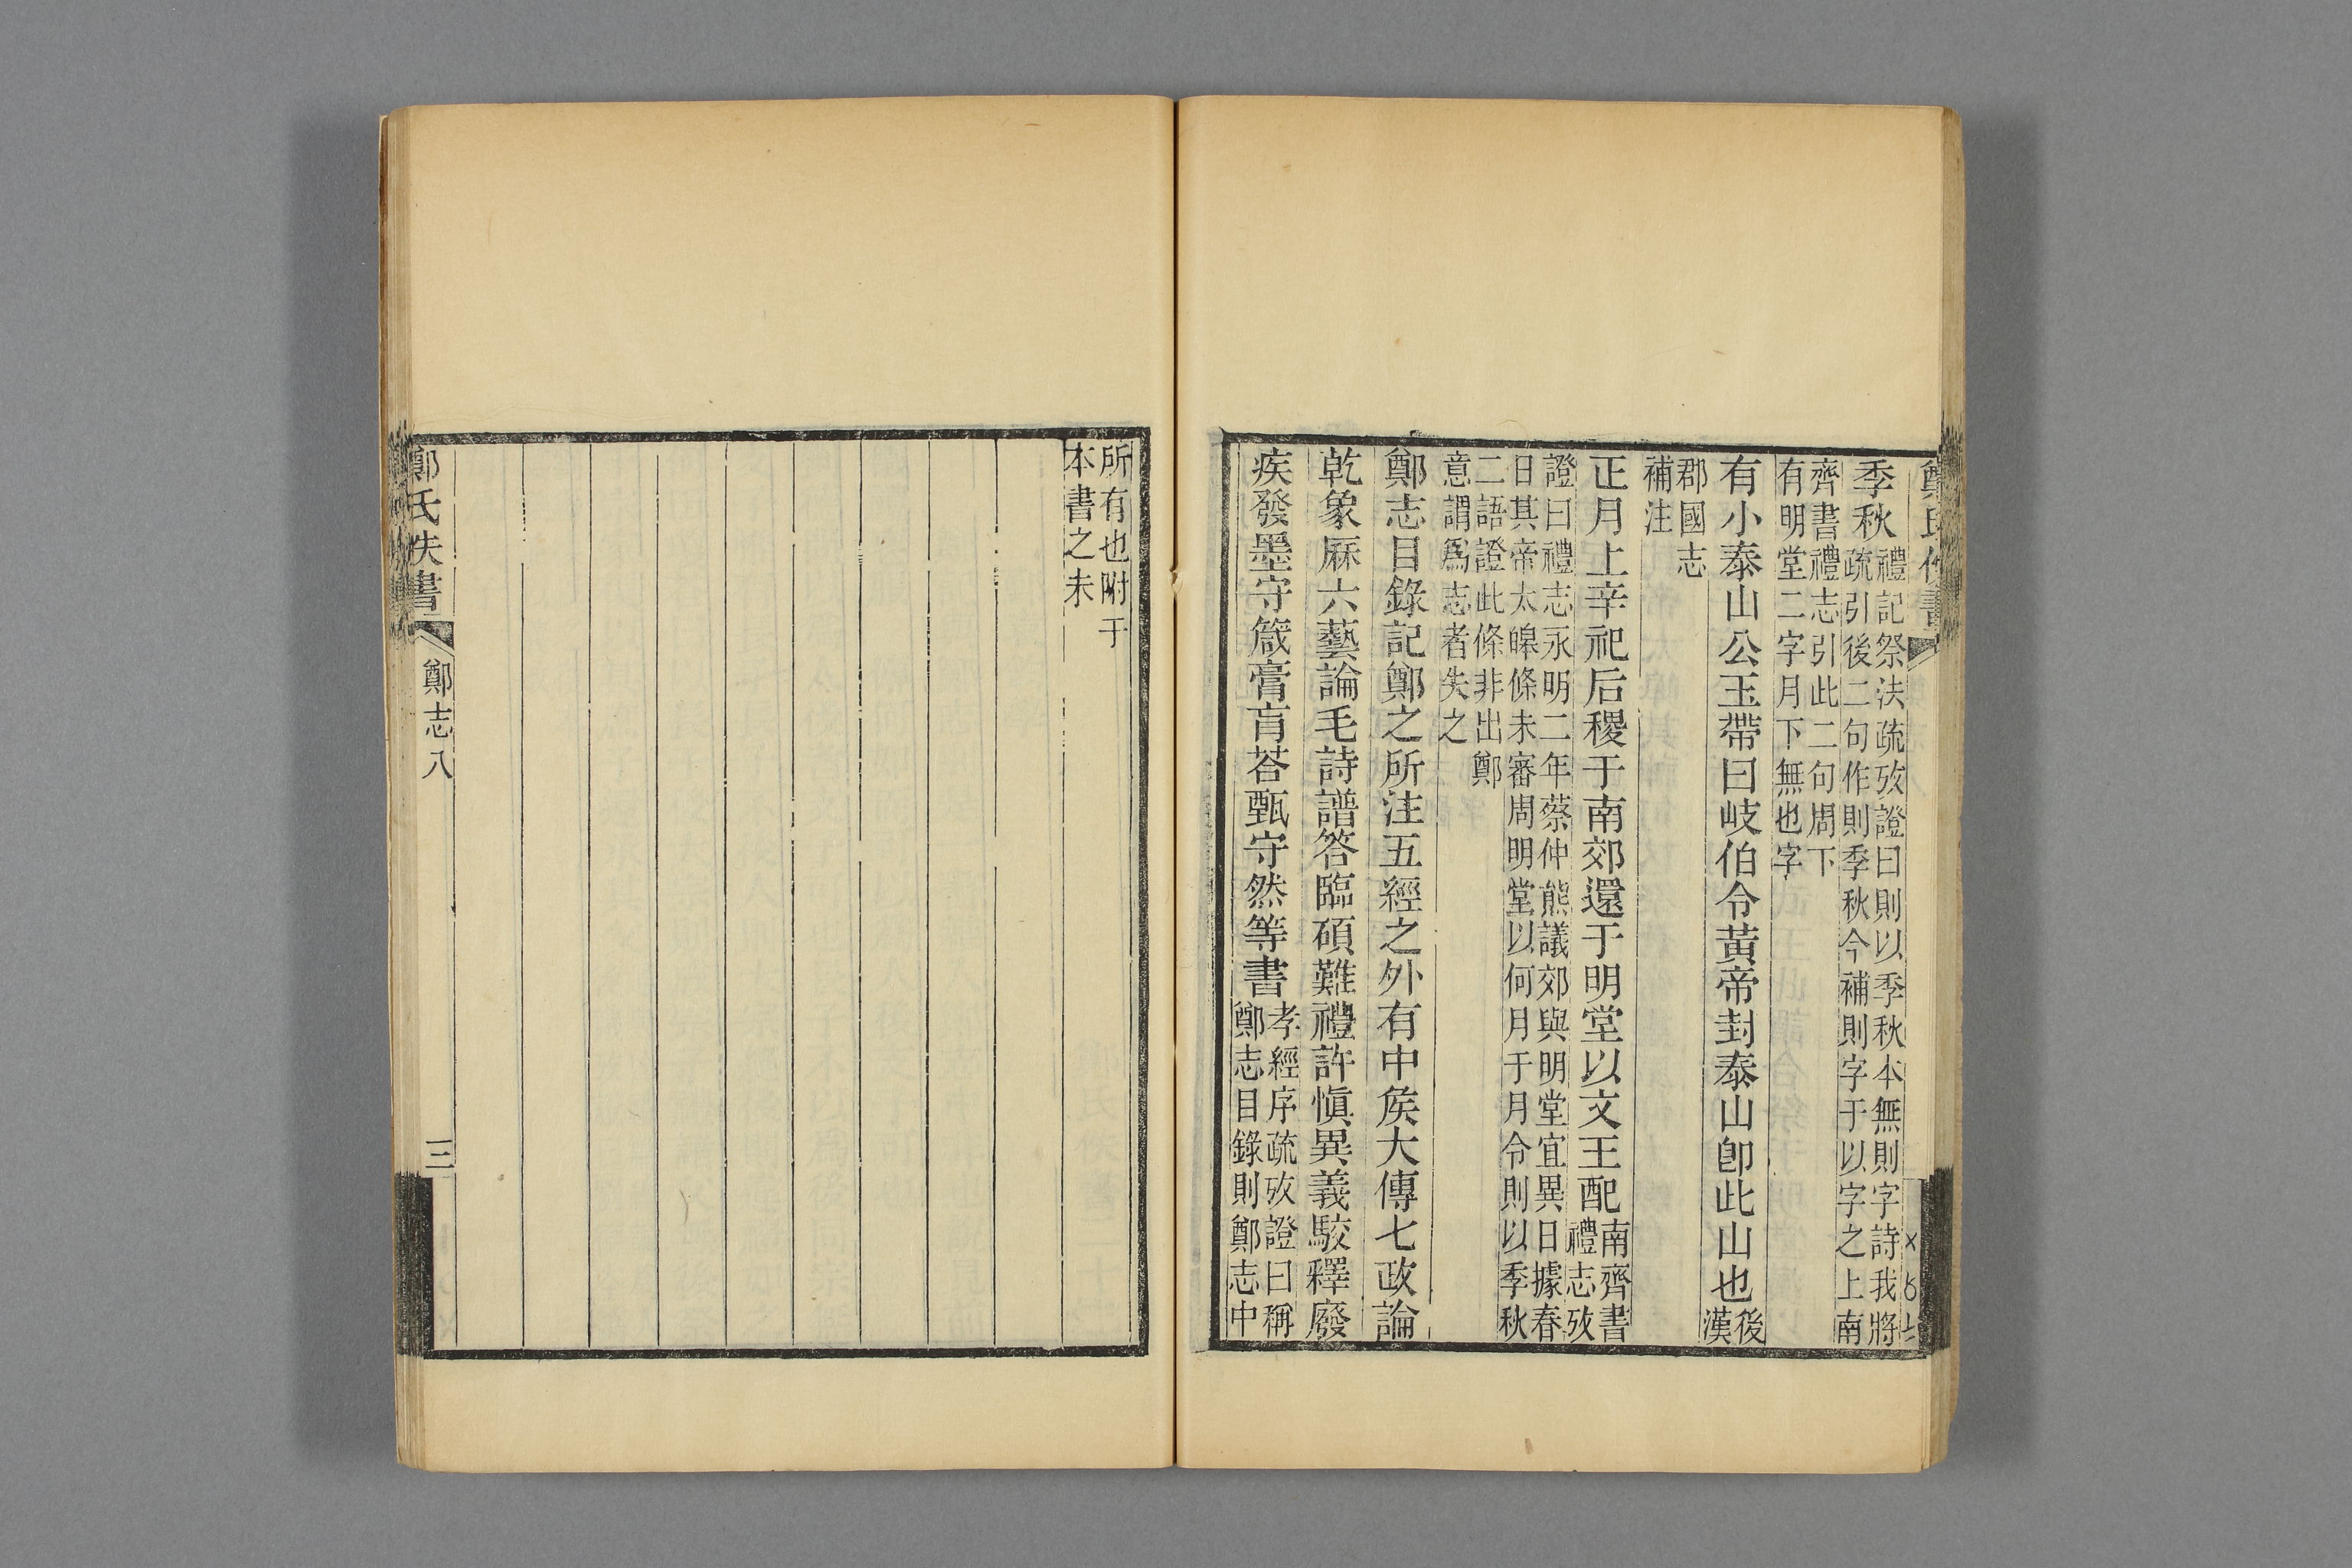 季秋禮記祭法疏攷證曰則以季秋本無則字詩我將
疏引後二句作則季秋今補則字于以字之上南
齊書禮志引此二句周下
有明堂二字月下無也字
有小泰山公玉帶曰岐伯令黃帝封泰山卽此山也後
漢
郡國志
補注
正月上辛祀后稷于南郊還于明堂以文王配南齊書
禮志攷
證曰禮志永明二年蔡仲熊議郊與明堂宜異日據春
日其帝太皥條未審周明堂以何月于月令則以季秋
二語證此條非出鄭
意謂爲志者失之
鄭志目錄記鄭之所注五經之外有中矦大傳七政論
乾象厤六藝論毛詩譜答臨碩難禮許愼異義駮釋廢
疾發墨守箴膏肓荅甄守然等書孝經序疏攷證曰稱
鄭志目錄則鄭志中
所有也附于
本書之末
鄭氏佚書
鄭志八
三